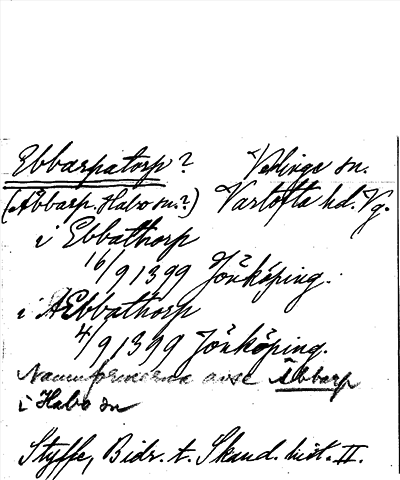 Ebbarpatorp? Velinge sn.
(Äbbarp. Habo sn.?) Vartofta hd. Vg.
i Ebbathorp
16/9 1399 Jönköping.
i Æbbathorp
4/9 1399 Jönköping.
Namnformerna avse Äbbarp
i Habo sn
Styffe, Bidr. t. Skand. hist. II.